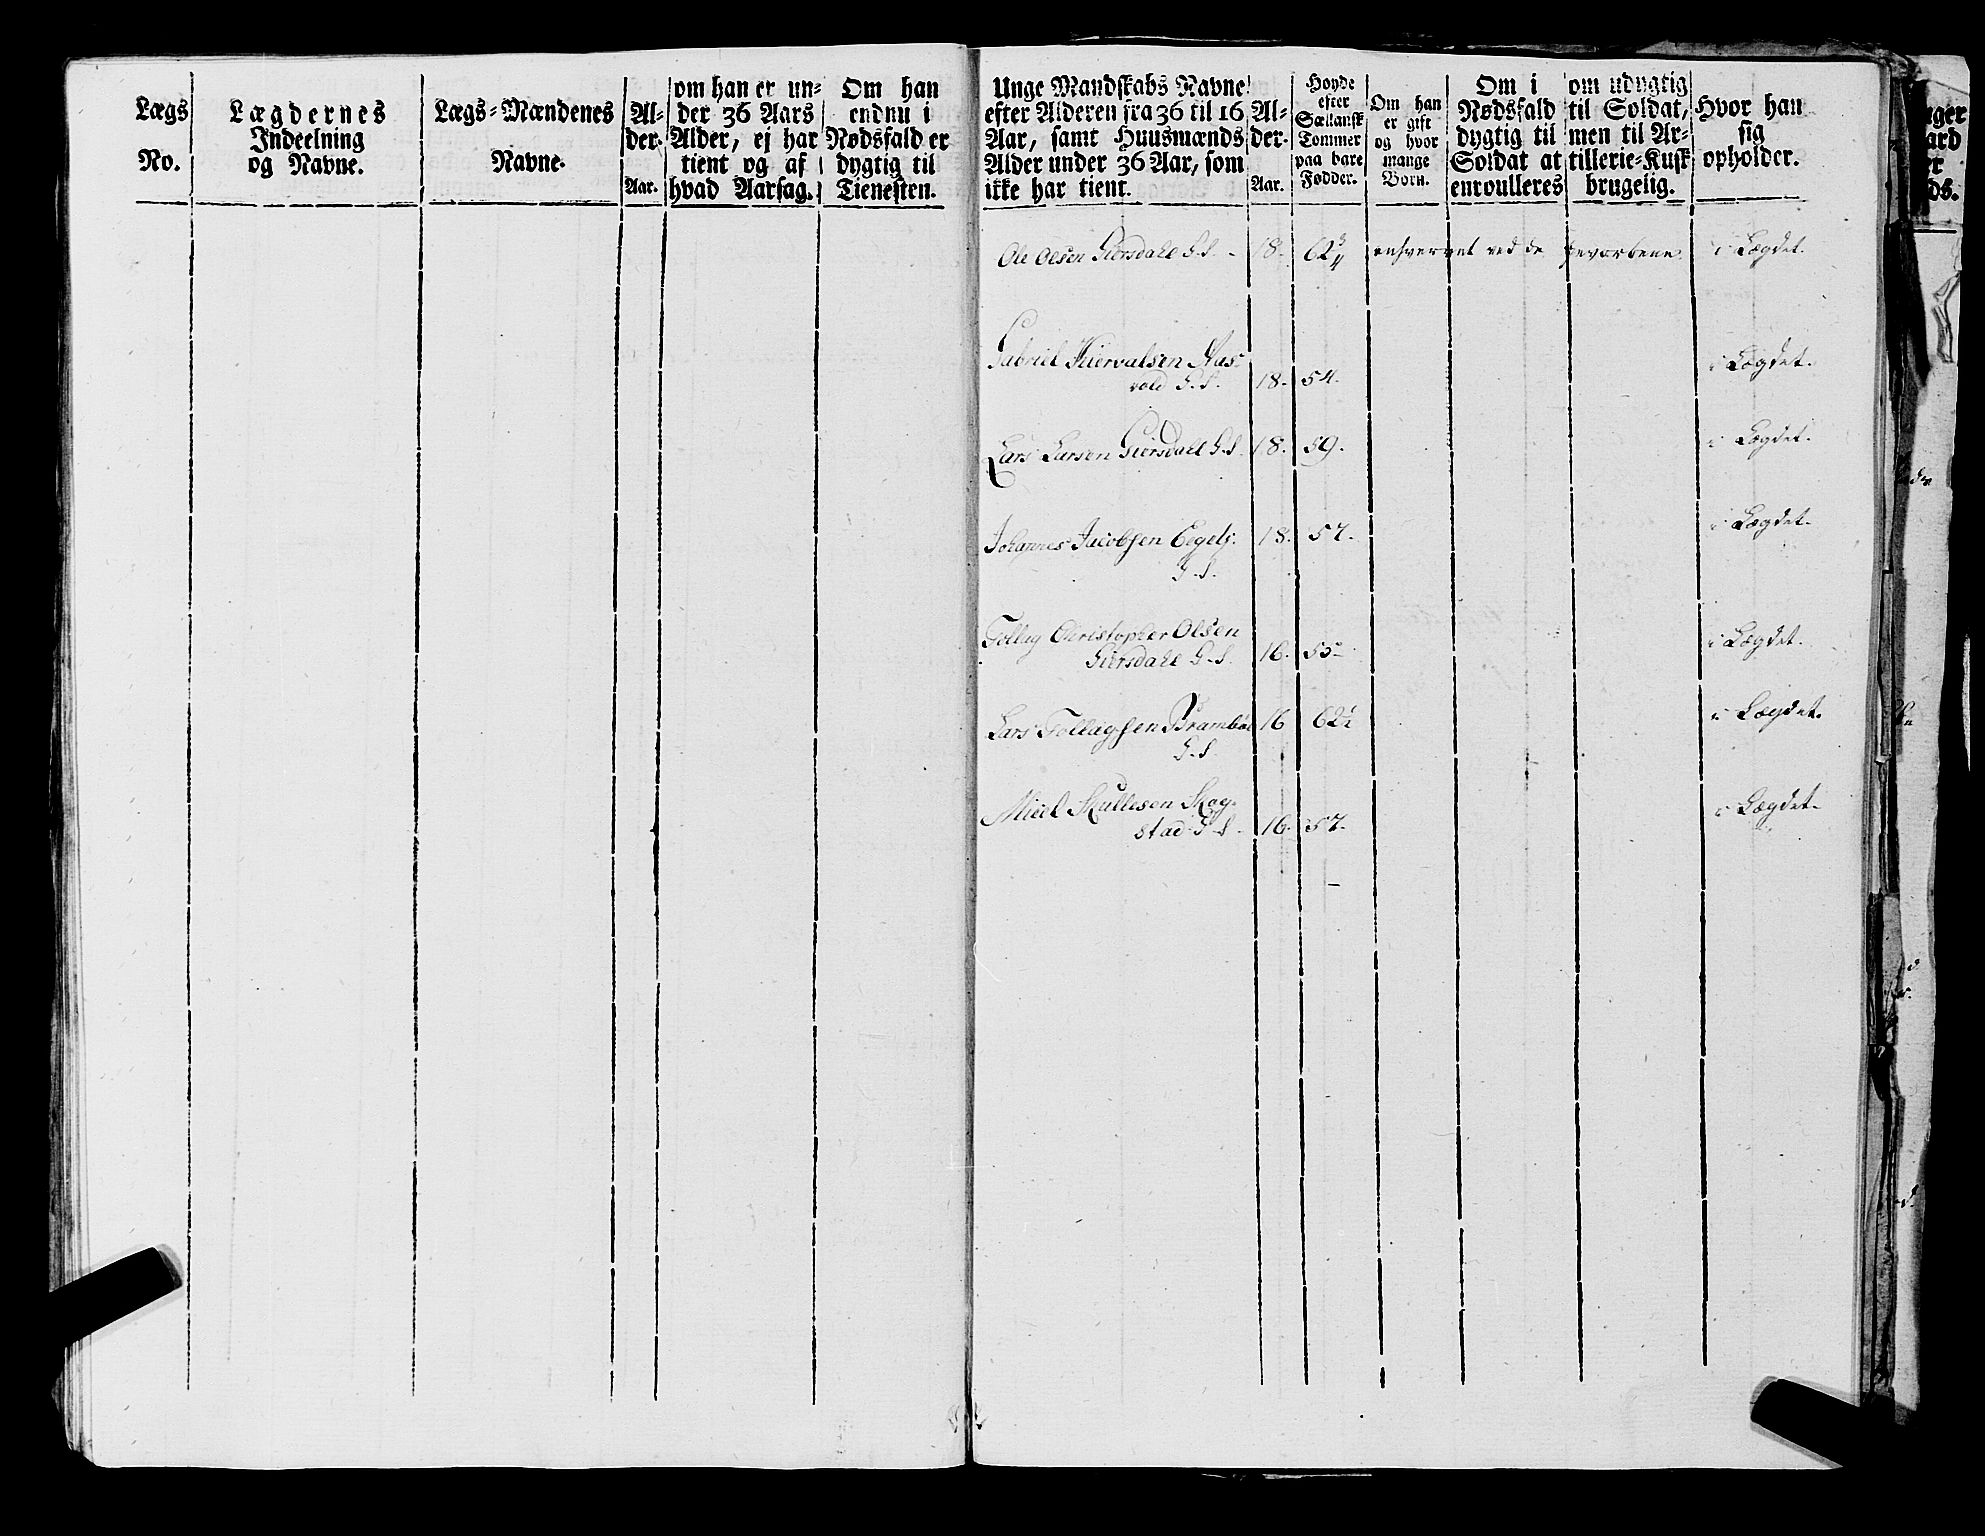 Lægs
No.
Lægdernes
Indeelning
og Navne.
Lægs-Mændenes
Navne.
Al-
der.
Aar.
om han er un-
der 36 Aars
Alder, ej har
tient og af
hvad Aarsag.
Om han
endnu i
Nødsfald er
dygtig til
Tienesten.
Unge Mandskabs Navne
efter Alderen fra 36 til 16
Aar, samt Huusmænds
Alder under 36 Aar, som
ikke har tient.
Al-
der.
Aar.
Høyde
efter
Sællansk
Tommer
paa bare
Fødder.
Om han
er gift
og hvor
mange
Børn.
Om i
Nødsfald
dygtig til
Soldat at
enroulleres
om udygtig
til Soldat,
men til Ar-
tillerie-Kusk
brugelig.
Hvor han
sig
opholder.
Ole Olsen Giorsdahl G.S. - 18. 62 3/4 enhvervet ved de hevorbene i Lægdet.
Gabriel Aas-
vold G.S. 18. 54. i Lægdet.
Lars Larsen Giorsdahl G.S. 18. 59. i Lægdet.
Johannes Jacobsen Eegels. 18. 57. i Lægdet.
G.S.
Tollag Christopher Olsen
Giorsdahl G.S. 16. 55 i Lægdet.
Lars Tollagsen Brambøe 16 62 1/2 i Lægdet.
G.S.
Micel Skullesen Skog-
stad G.S. 16. 57. i Lægdet.